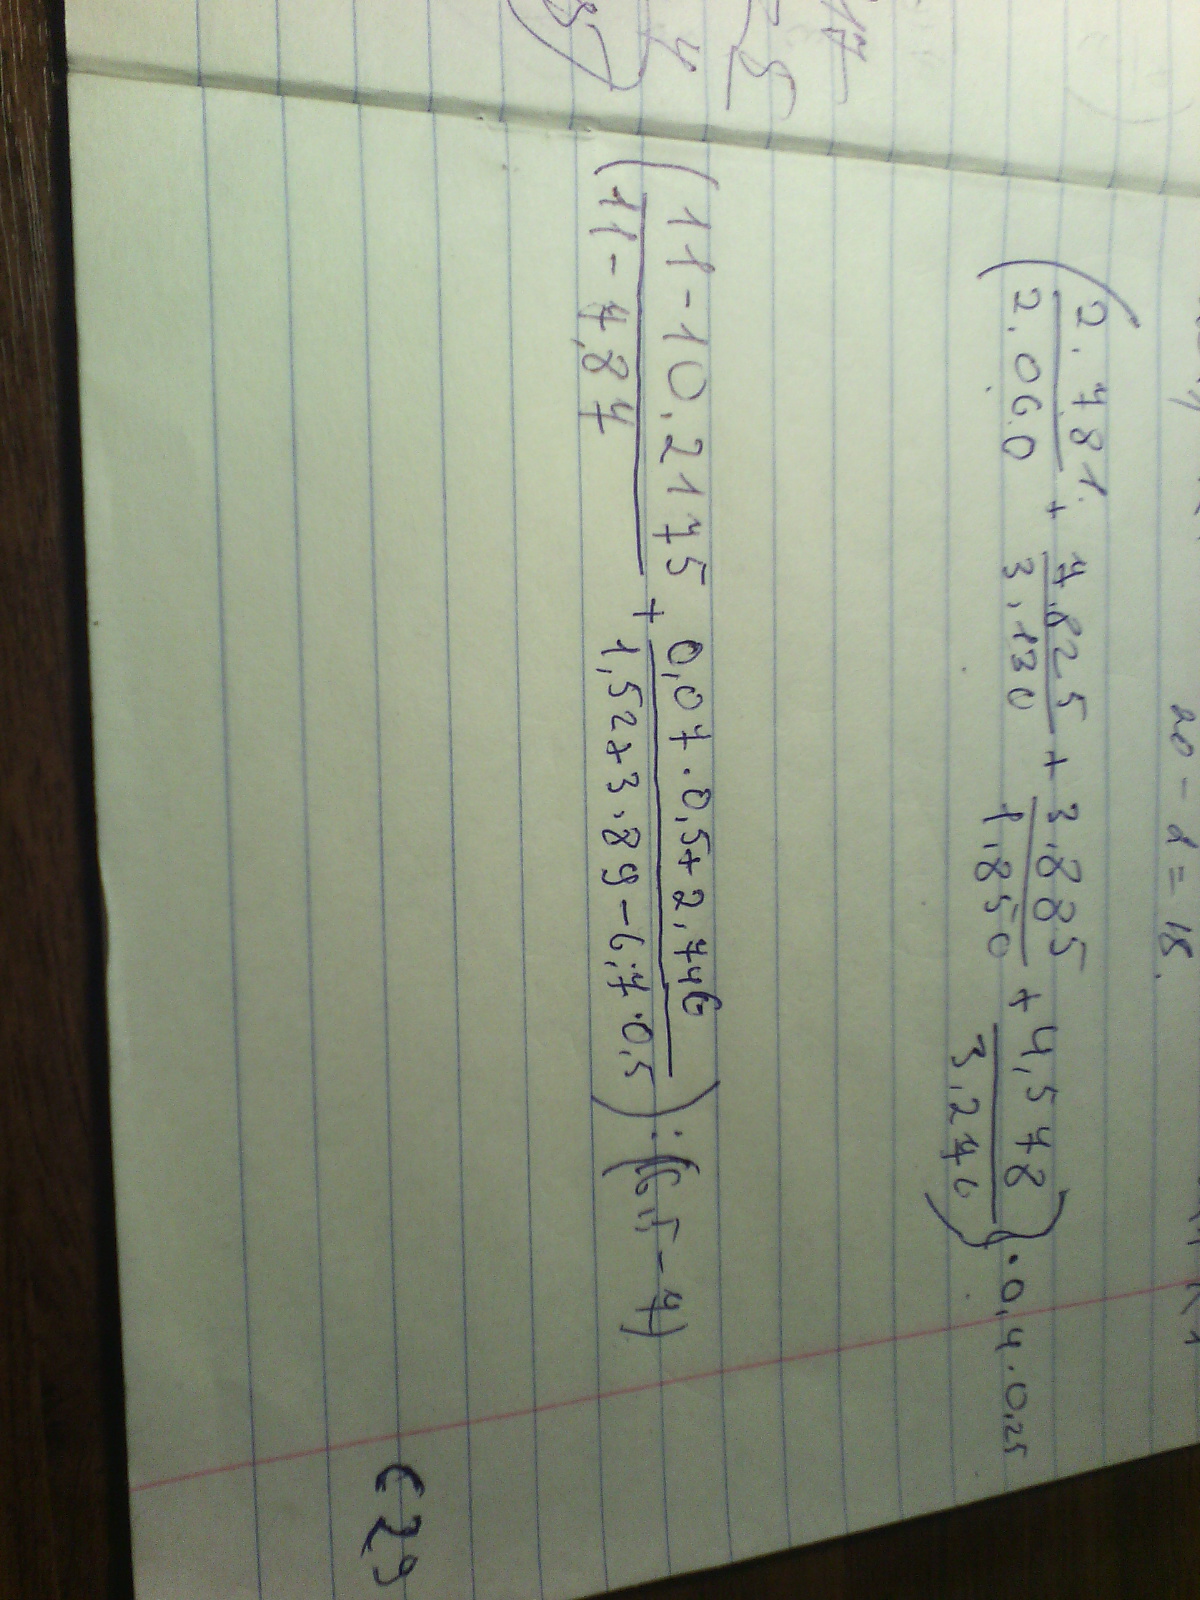 20 - 2 = 18.
(2.781/2.060 + 7.825/3.130 + 3.885/1.850 + 4,578/3.270) · 0,4 · 0,25
(11 - 10,2175/11 - 7,87 + 0,07 · 0,5 + 2,746/1,52 + 3.89 - 6,7 · 0,5) : (6,5 - 4)
€ 29